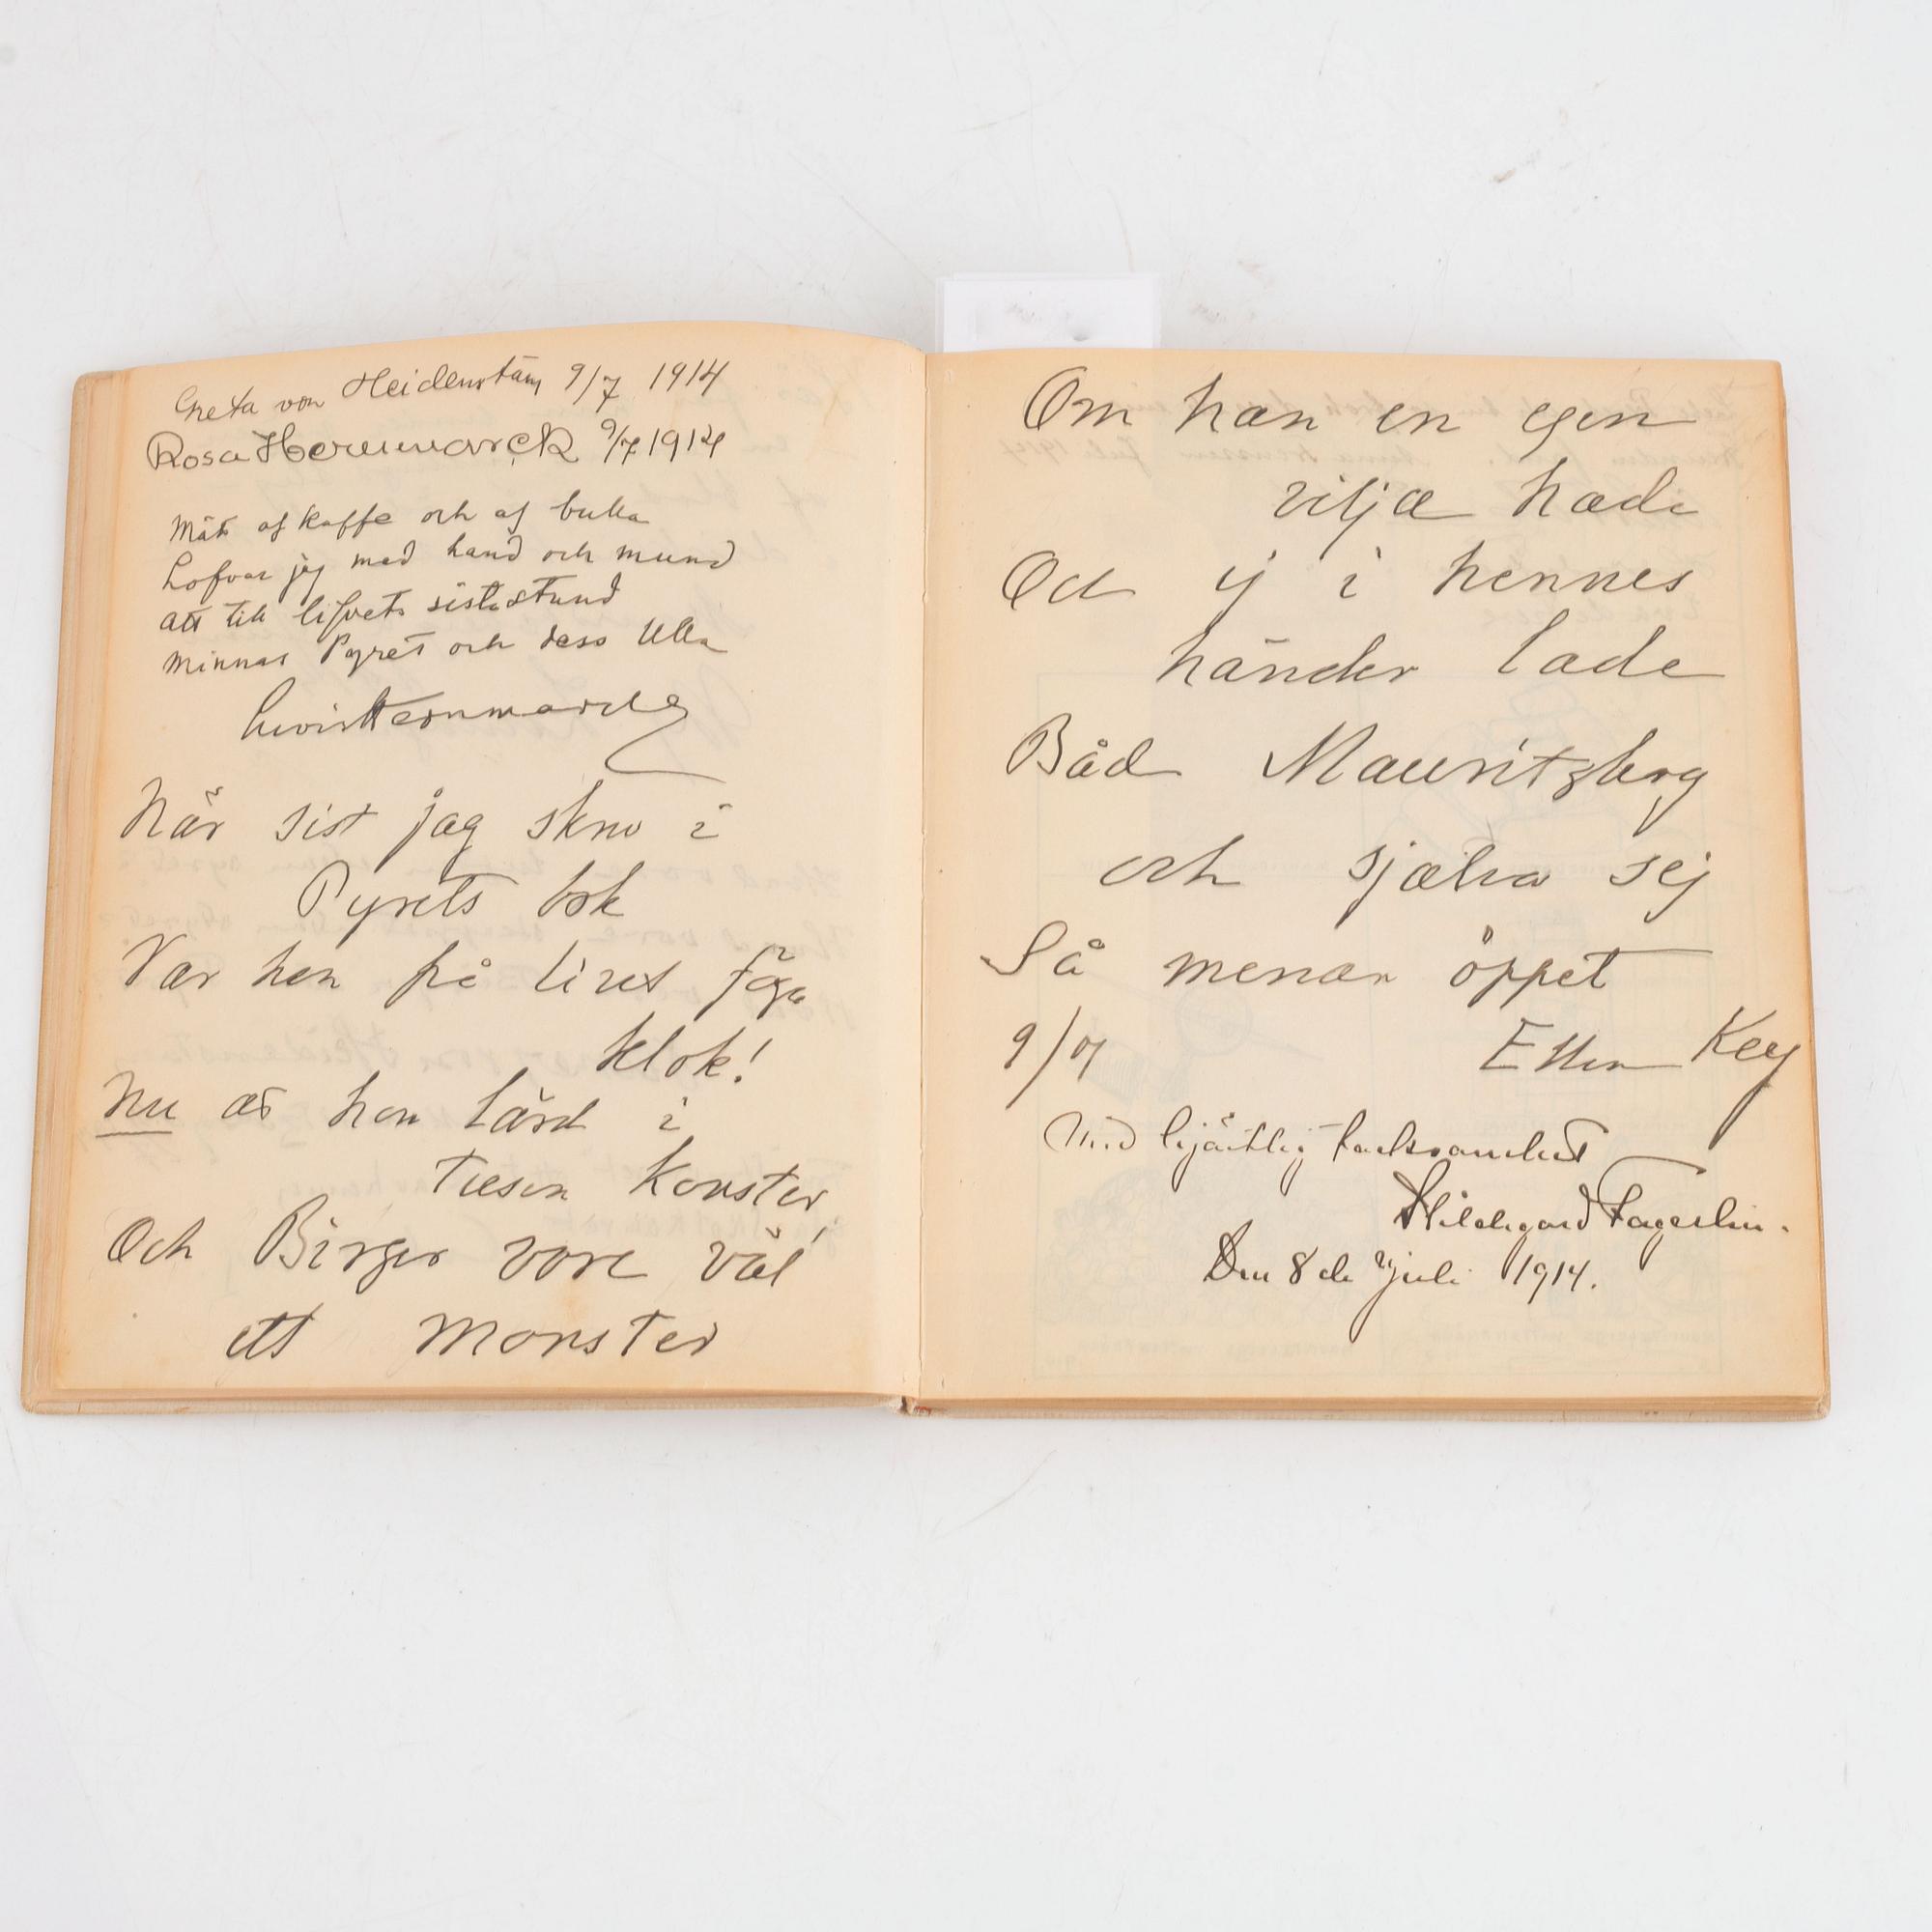 Greta von Heidenstam 9/7 1914
Rosa Hermmarck 9/7 1914
Mät af kaffe och af bulla
Lofvar jag med hand och mund
att till lifvets sista stund
minnas Pyret och dess Ulla
När sist jag skrev i
Pyrets bok
Var hon på livet föga
klok!
Nu är hon lärd i
tusen konster
Och Birger vore väl
ett monster
Om han en egen
vilja hade
Och ej i hennes
händer lade
Båd Mauritzberg
och sjelva sej
Så menar öppet
9/07 Ellen Key
Med hjärtlig tacksamhet
Hildegard Fagerlin.
Den 8de Juli 1914.